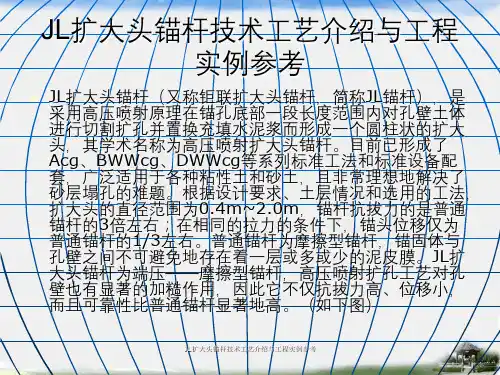 JL扩大头锚杆技术工艺介绍与工程
实例参考
JL扩大头锚杆（又称钜联扩大头锚杆，简称JL锚杆），是
采用高压喷射原理在锚孔底部一段长度范围内对孔壁土体
进行切割扩孔并置换充填水泥浆而形成一个圆柱状的扩大
头，其学术名称为高压喷射扩大头锚杆。目前已形成了
Acg、BWWcg、DWWcg等系列标准工法和标准设备配
套，广泛适用于各种粘性土和砂土，且非常理想地解决了
砂层塌孔的难题。根据设计要求、土层情况和选用的工法，
扩大头的直径范围为0.4m~2.0m，锚杆抗拔力是普通
锚杆的3倍左右；在相同的拉力的条件下，锚头位移仅为
普通锚杆的1/3左右。普通锚杆为摩擦型锚杆，锚固体与
孔壁之间不可避免地存在着一层或多或少的泥皮膜。JL扩
大头锚杆为端压——摩擦型锚杆，高压喷射扩孔工艺对孔
壁也有显著的加糙作用，因此它不仅抗拔力高、位移小，
而且可靠性比普通锚杆显著地高。（如下图）
JL扩大头锚杆技术工艺介绍与工程实例参考